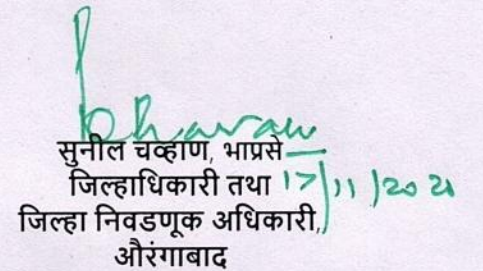 सुनील चव्हाण, भाप्रसे
जिल्हाधिकारी तथा 17/11/2021
जिल्हा निवडणूक अधिकारी,
औरंगाबाद